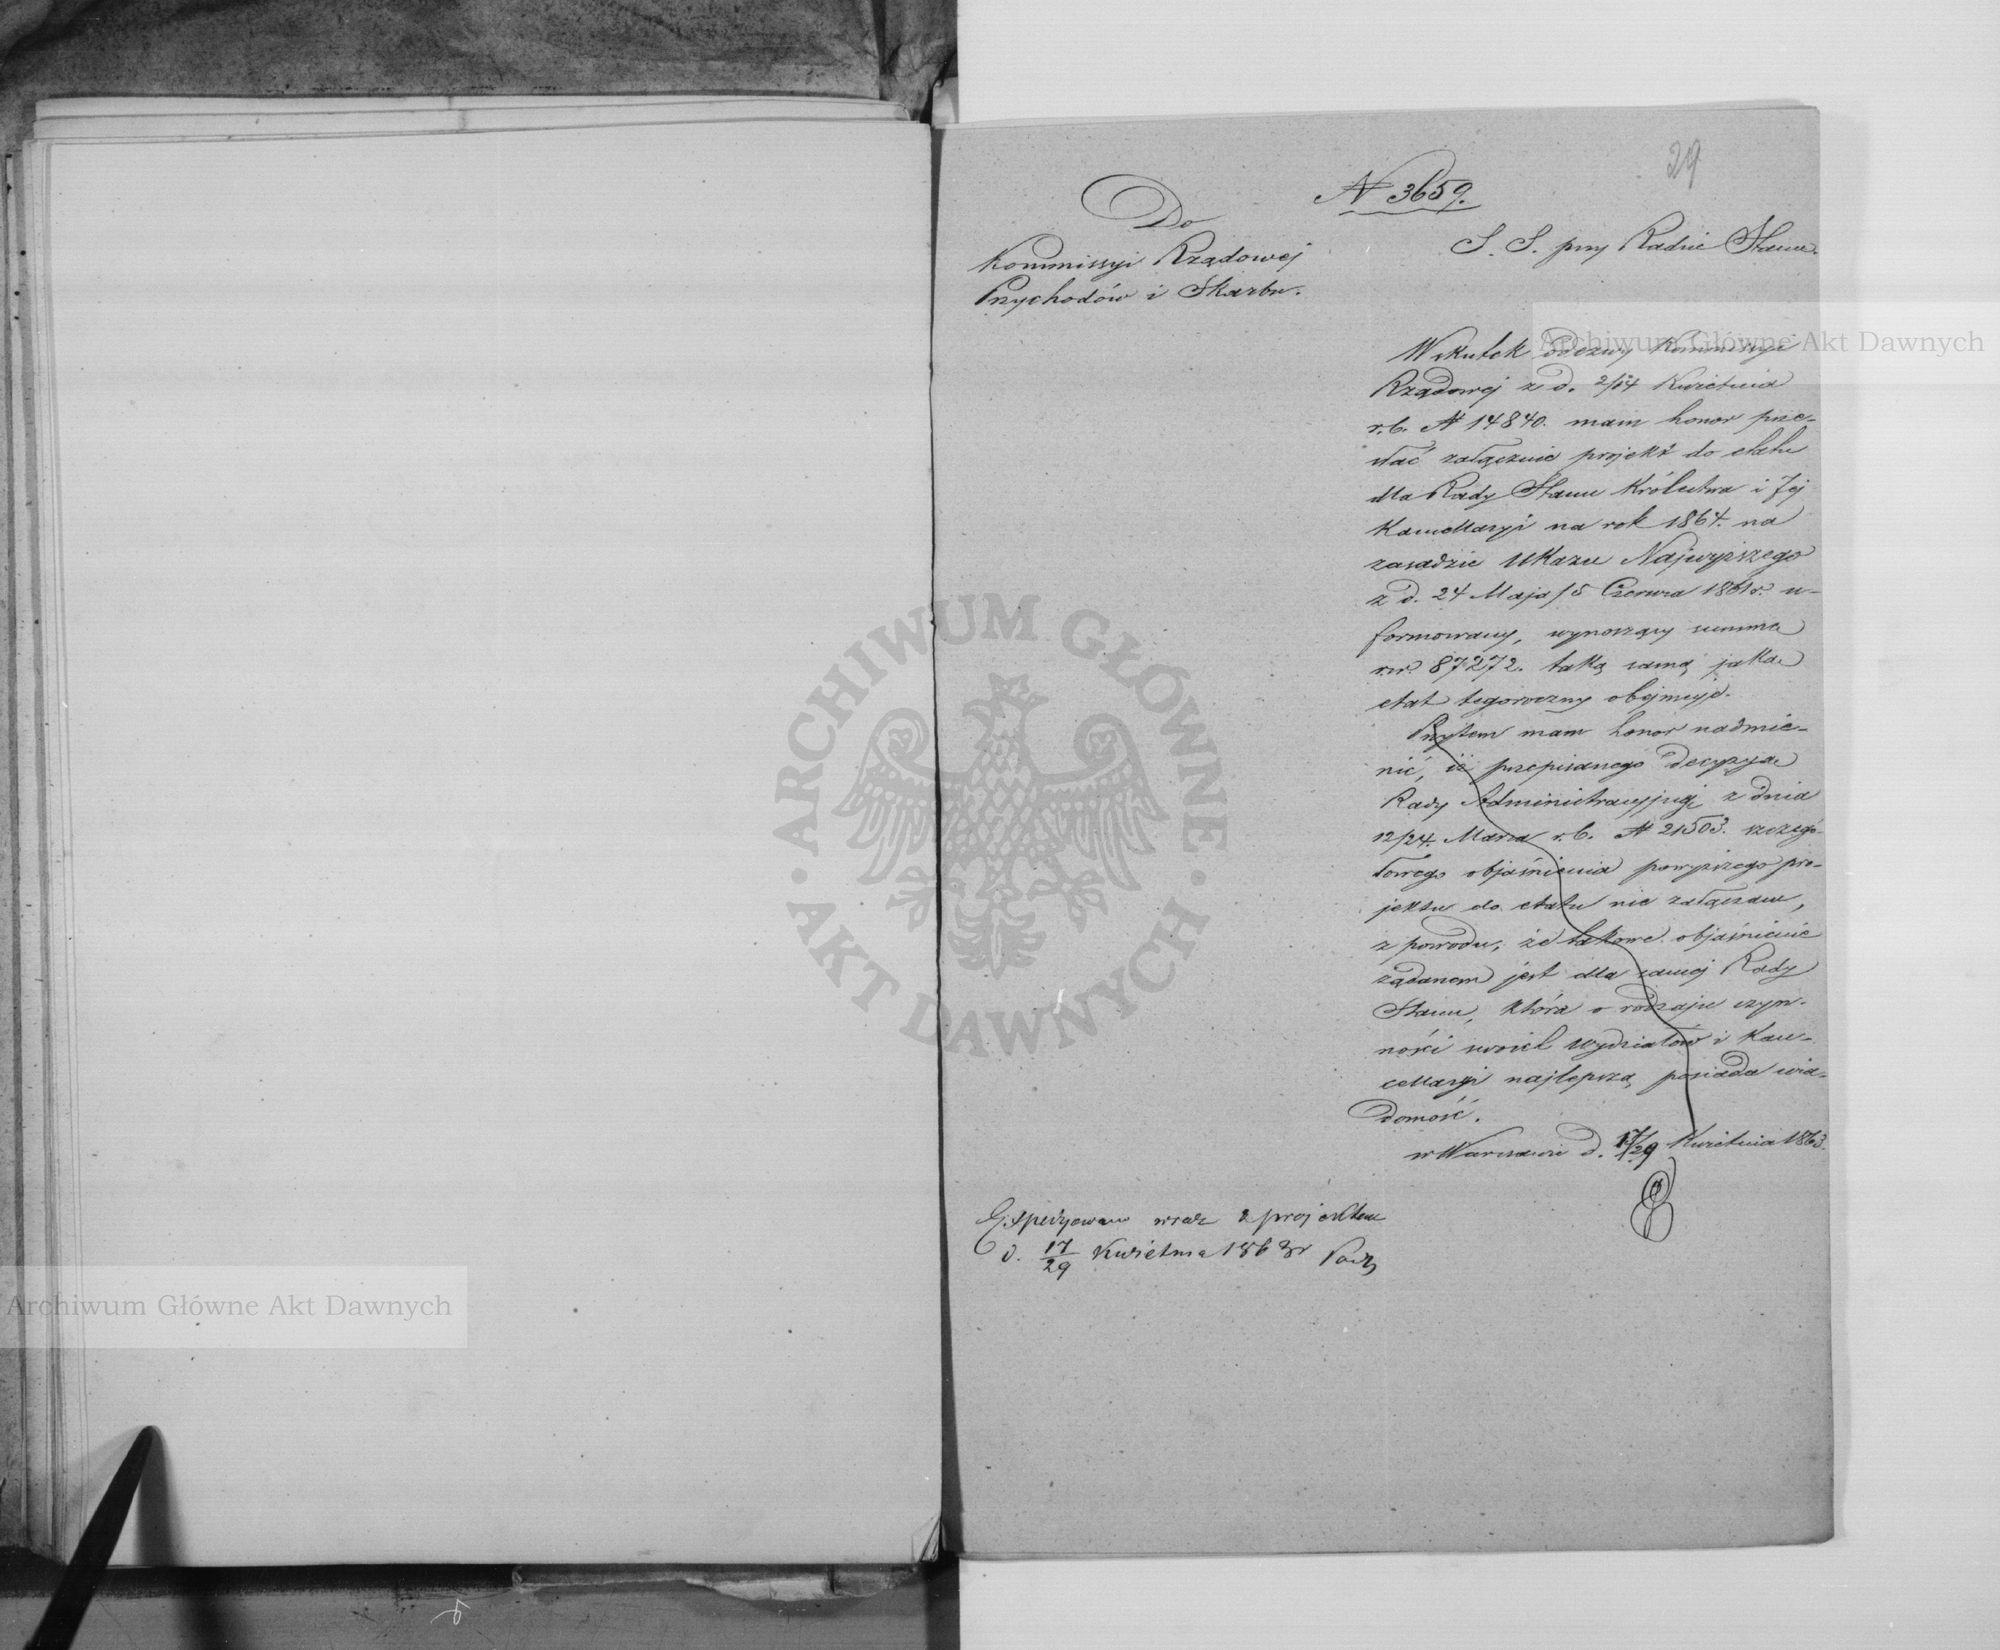 29
N 3659.
Do
Kommissyi Rządowej
Przychodów i Skarbu.
S. S. przy Radzie Stanu.
Wskutek odezwy Kommissyi
Rządowej z d. 2/14 Kwietnia
r.b. N 14840. mam honor prze-
słać załącznie projekt do etatu
dla Rady Stanu Królestwa i Jej
Kancellaryi na rok 1864. na
zasadzie Ukazu Najwyższego
z d. 24 Maja/5 Czerwca 1861 r. u-
formowany, wynoszący summę
rsr. 87272. taką samą jaką
etat tegoroczny obejmuje.
Przytem mam honor nadmie-
nić, iż przepisanego decyzją
Rady Administracyjnej z dnia
12/24. Marca r.b. N 21503. szczegó-
łowego objaśnienia powyższego pro-
jektu do etatu nie załączam,
z powodu, że takowe objaśnienie
żądanem jest dla samej Rady
Stanu, która o rodzaju czyn-
ności swoich Wydziałów i Kan-
cellaryi najlepszą posiada wia-
domość.
w Warszawie d. 17/29 Kwietnia 1863.
Expedyowano wraz z projektem
d. 17/29 Kwietnia 1863 r
Archiwum Główne Akt Dawnych
Archiwum Główne Akt Dawnych
ARCHIWUM GŁÓWNE · AKT DAWNYCH ·